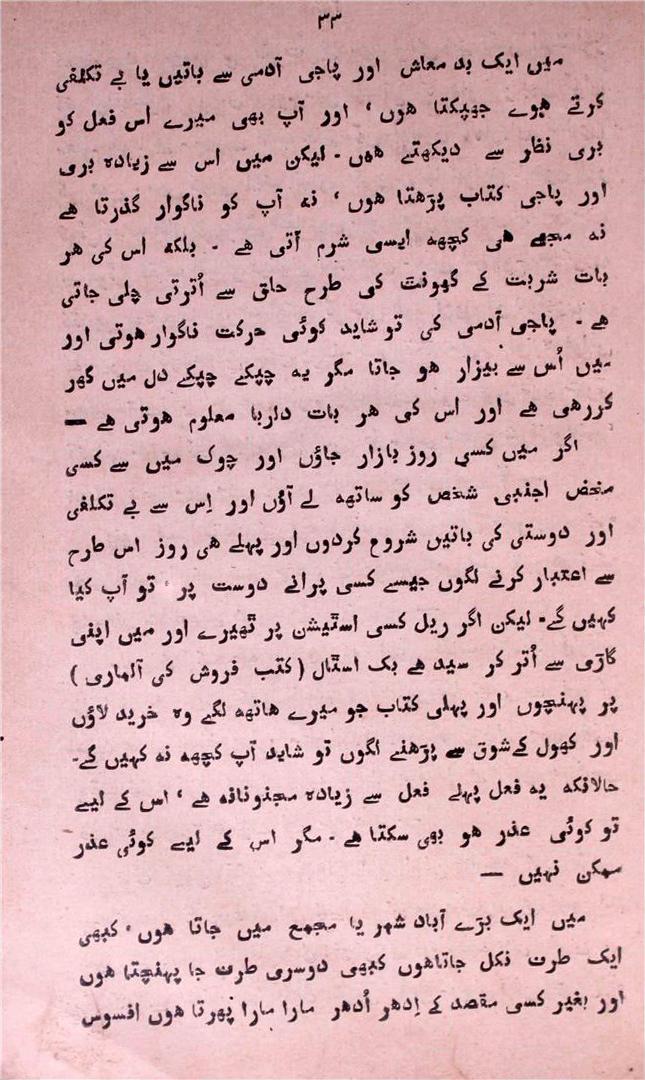 ۳۳
میں ایک بد معاش اور پاجی آدمی سے باتیں یا بے تکلفی
کرتے ہوے جھپکتا ہوں ' اور آپ بھی میرے اس فعل کو
بری نظر سے دیکھتے ہیں - لیکن میں اس سے زیادہ بری
اور پاجی کتاب پڑھتا ہوں ' نہ آپ کو ناگوار گذرتا ہے
نہ مجھے ہی کچھہ ایسی شرم آتی ہے - بلکہ اس کی ہر
بات شربت کے گھونٹ کی طرح حلق سے اُترتی چلی جاتی
ہے - پاجی آدمی کی تو شاید کوئی حرکت ناگوار ہوتی اور
میں اُس سے بیزار ہو جاتا مگر یہ چپکے چپکے دل میں گھر
کررہی ہے اور اس کی ہر بات دلربا معلوم ہوتی ہے —
اگر میں کسی روز بازار جاؤں اور چوک میں سے کسی
محض اجنبی شخص کو ساتھہ لے آؤں اور اِس سے بے تکلفی
اور دوستی کی باتیں شروع کردوں اور پہلے ہی روز اس طرح
سے اعتبار کرنے لگوں جیسے کسی پرانے دوست پر ' تو آپ کیا
کہیں گے - لیکن اگر ریل کسی اسٹیشن پر ٹھیرے اور میں اپنی
گاڑی سے اُتر کر سیدھے بک اسٹال ( کتب فروش کی آلماری )
پر پہنچوں اور پہلی کتاب جو میرے ہاتھہ لگے وہ خرید لاؤں
اور کھول کے شوق سے پڑھنے لگوں تو شاید آپ کچھہ نہ کہیں گے -
حالانکہ یہ فعل پہلے فعل سے زیادہ مجنونانہ ہے ' اس کے لیے
تو کوئی عذر ہو بھی سکتا ہے - مگر اس کے لیے کوئی عذر
ممکن نہیں —
میں ایک بڑے آباد شہر یا مجمع میں جاتا ہوں ' کبھی
ایک طرف نکل جاتاہوں کبھی دوسری طرف جا پہنچتا ہوں
اور بغیر کسی مقصد کے اِدھر اُدھر مارا مارا پھرتا ہوں افسوس